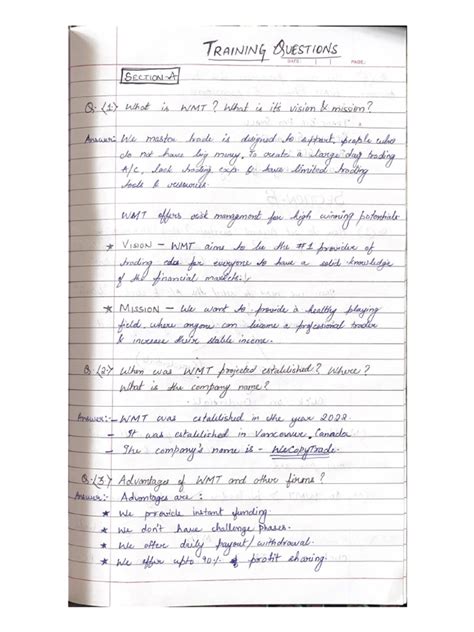 TRAINING QUESTIONS
DATE: | | PAGE:
SECTION-A
Q.(1) What is WMT? What is its vision & mission?
Answer:- We master trade is designed to support, people who
do not have big money, to create a large day trading
A/C, lack trading exp & have limited trading
tools & resources.
WMT offers risk management for high winning potentials
★ VISION – WMT aims to be the #1 provider of
trading for everyone to have a solid knowledge
of the financial markets.
★ MISSION – We want to provide a healthy playing
field, where anyone can become a professional trader
& increase their stable income.
Q.(2) When was WMT projected established? Where?
What is the company name?
Answer:- – WMT was established in the year 2022.
– It was established in Vancouver, Canada
– The company's name is – WeCopyTrade.
Q.(3) Advantages of WMT and other firms?
Answer:- Advantages are :
★ We provide instant funding.
★ We don't have challenge phases.
★ We offer daily payout/withdrawal.
★ We offer upto 90% of profit sharing.